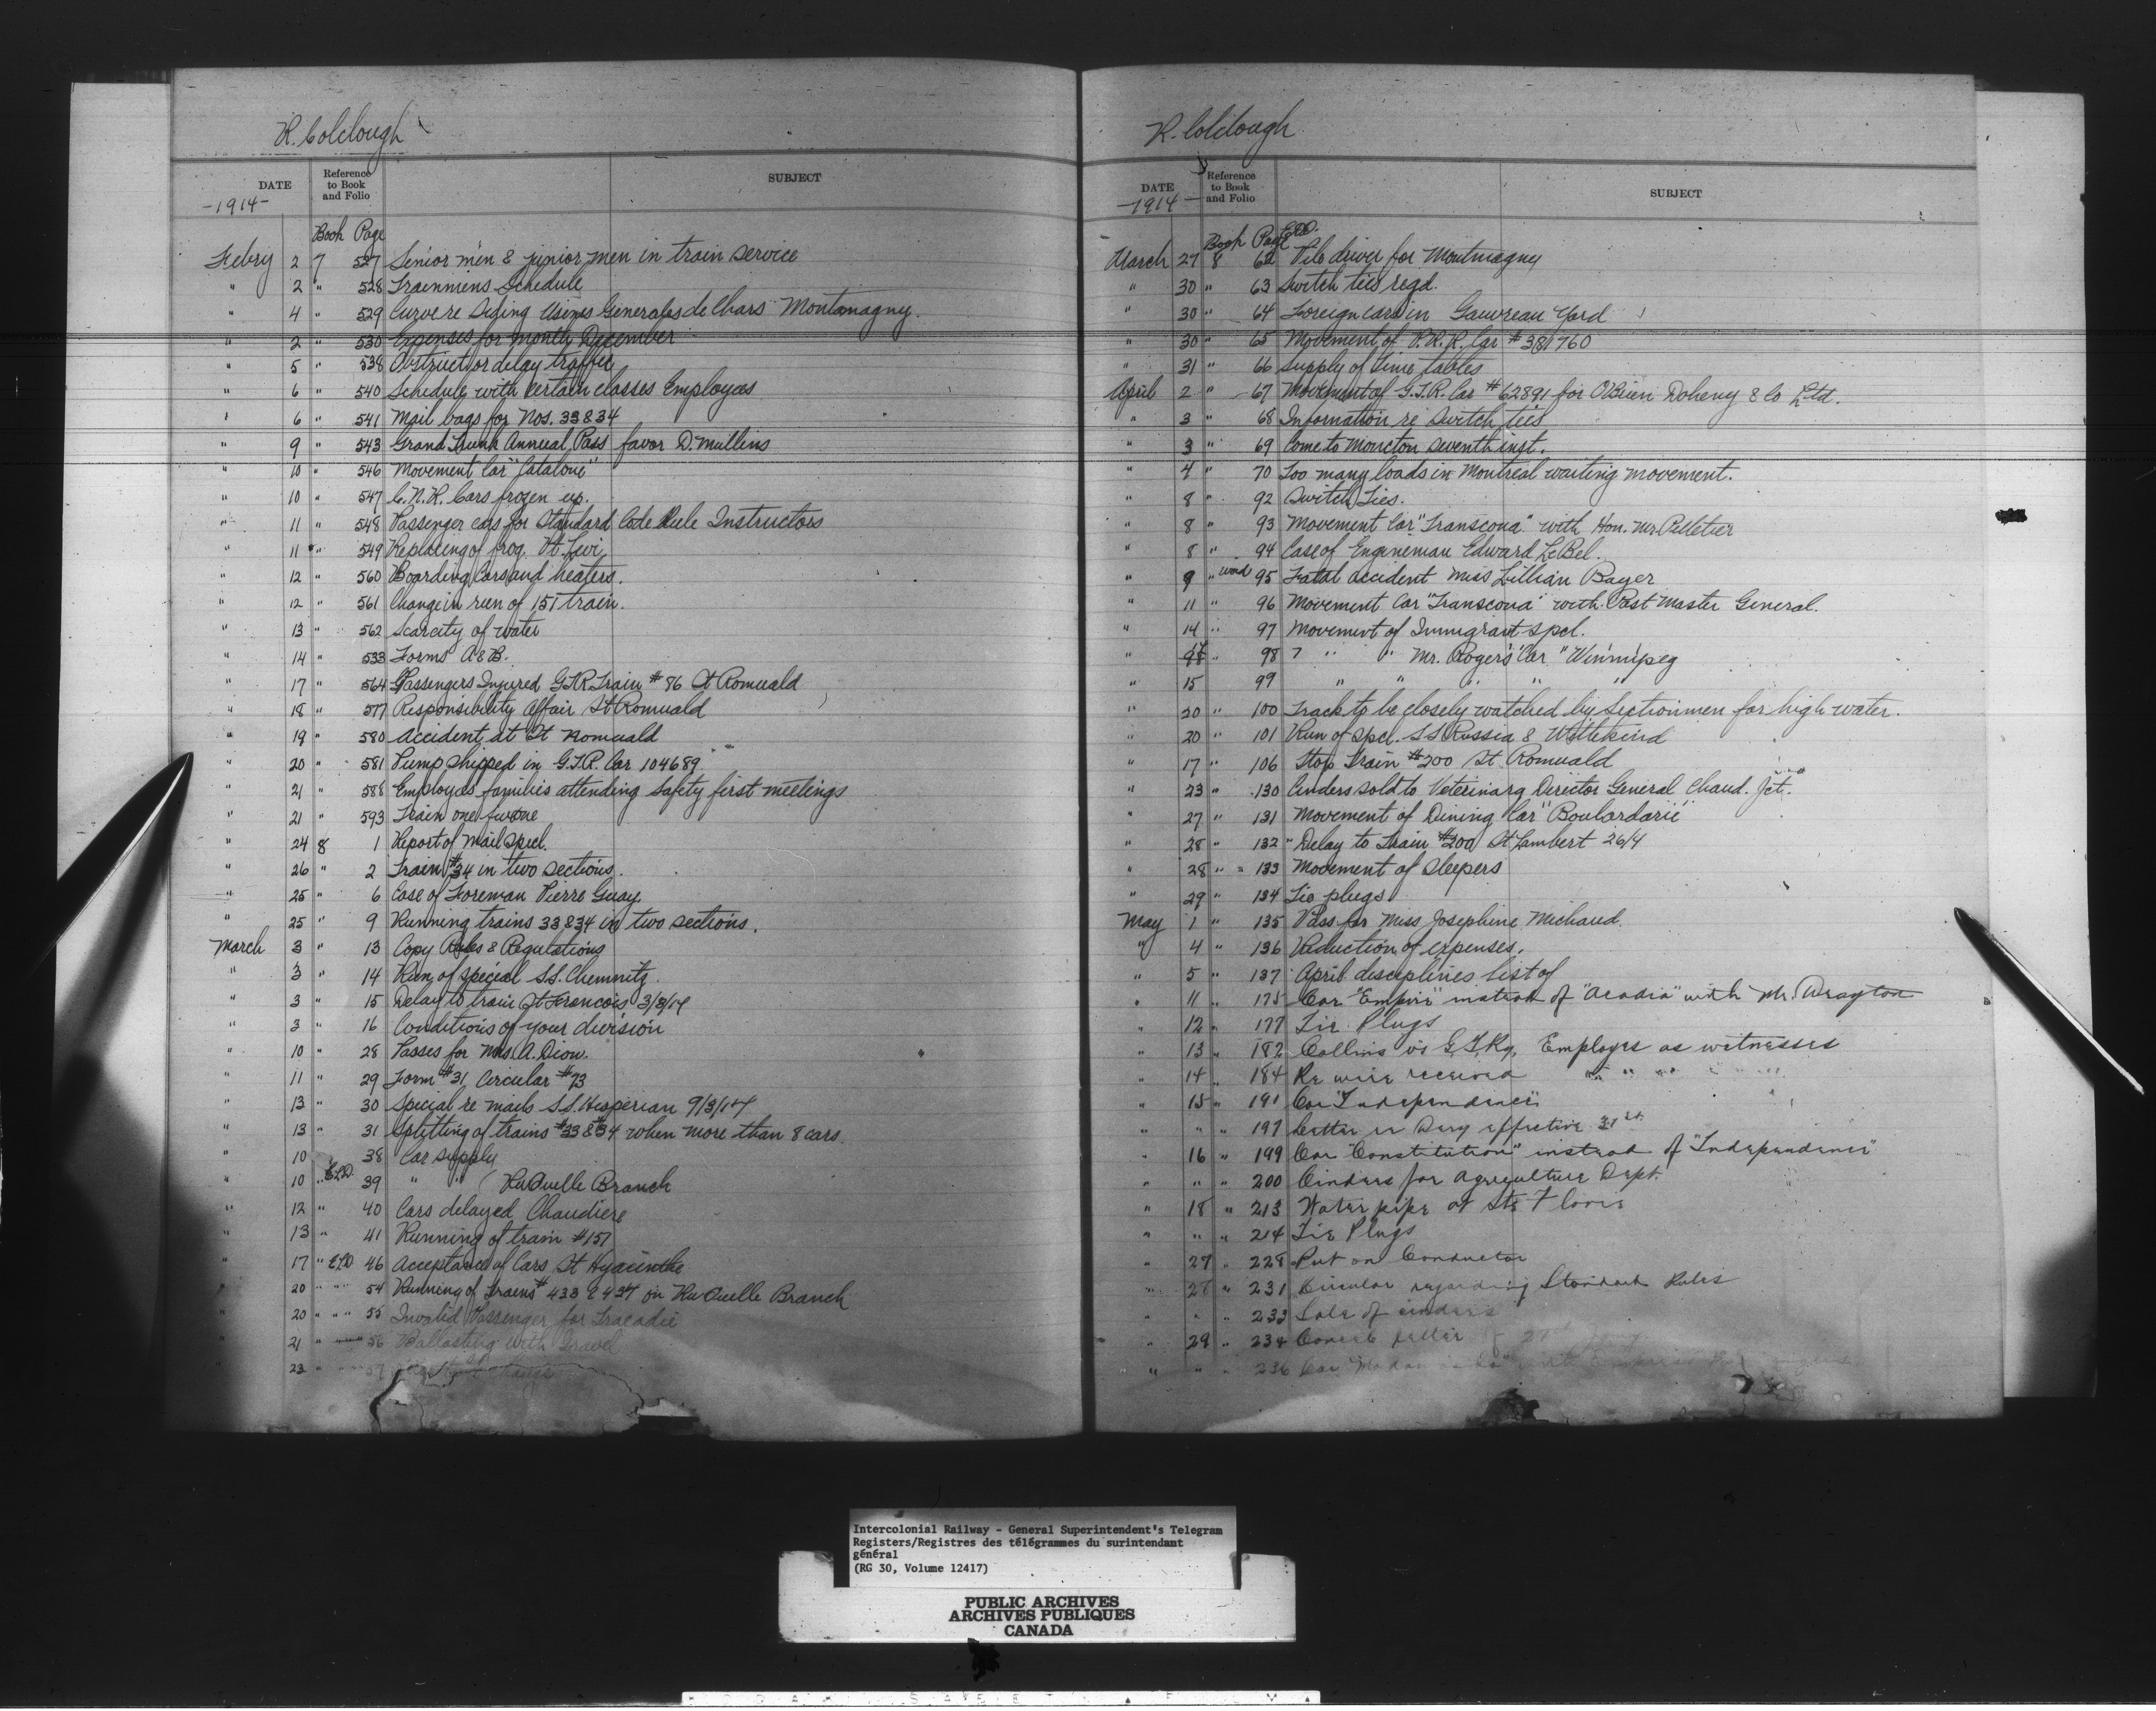 R. Colclough
DATE
Reference to Book and Folio
SUBJECT
-1914-
Book Page
Febry 2 7 527 Senior men & junior men in train service
" 2 " 528 Trainmens Schedule
" 4 " 529 Curve re Siding Usines Generales de Chars Montamagny.
" 2 " 530 Expenses for month December
" 5 " 538 Obstruct or delay traffic
" 6 " 540 Schedule with certain classes Employees
" 6 " 541 Mail bags for Nos. 33 & 34
" 9 " 543 Grand Trunk Annual Pass favor D. Mullins
" 10 " 546 Movement Car "Catalone"
" 10 " 547 C.N.R. Cars frozen up.
" 11 " 548 Passenger cars for Standard Code Rule Instructors
" 11 " 549 Replacing of frog. Pt. Levi
" 12 " 560 Boarding Cars and heaters.
" 12 " 561 Change in run of 151 train.
" 13 " 562 Scarcity of water
" 14 " 533 Forms A & B.
" 17 " 564 Passengers Injured G.T.R. Train # 86 St Romuald
" 18 " 577 Responsibility Affair St Romuald
" 19 " 580 Accident at St Romuald
" 20 " 581 Pump shipped in G.T.R. Car 104689
" 21 " 588 Employes families attending Safety first meetings
" 21 " 593 Train one five one
" 24 8 1 Report of Mail Specl.
" 26 " 2 Train #34 in two sections.
" 25 " 6 Case of Foreman Pierre Guay.
" 25 " 9 Running trains 33 & 34 in two sections.
March 3 " 13 Copy Rules & Regulations
" 3 " 14 Run of special S.S. Chemnitz.
" 3 " 15 Delay to train St Francois 3/3/14
" 3 " 16 Conditions of your division
" 10 " 28 Passes for Mrs. A. Dion.
" 11 " 29 Form #31, Circular #73
" 13 " 30 Special re mails S.S. Hesperian 9/3/14
" 13 " 31 Splitting of trains #33 & #34 when more than 8 cars.
" 10 38 Car supply
" 10 " 39 " " Riv Ouelle Branch
" 12 " 40 Cars delayed Chaudiere
" 13 " 41 Running of train #151
" 17 " 46 Acceptance of Cars St Hyacinthe
" 20 " 54 Running of Trains # 433 & 434 on Riv Ouelle Branch
" 20 " 55 Invalid Passenger for Tracadie
" 21 " 56 Ballasting with Gravel
" 23 " 57
R. Colclough
DATE
Reference to Book and Folio
SUBJECT
-1914-
Book Page
March 27 8 62 Pile driver for Montmagny
" 30 " 63 Switch ties reqd.
" 30 " 64 Foreign cars in Gauvreau Yard
" 30 " 65 Movement of P.R.R. Car # 381760
" 31 " 66 Supply of Time tables
April 2 " 67 Movement of G.T.R. Car # 62891 for O'Brien Doheny & Co Ltd.
" 3 " 68 Information re switch ties
" 3 " 69 Come to Moncton seventh inst.
" 4 " 70 Too many loads in Montreal waiting movement.
" 8 " 92 Switch Ties.
" 8 " 93 Movement Car "Transcona" with Hon. Mr. Pelletier
" 8 " 94 Case of Engineman Edward LeBel.
" 9 " 95 Fatal accident Miss Lillian Bager
" 11 " 96 Movement Car "Transcona" with Post Master General.
" 14 " 97 Movement of Immigrant spcl.
" " 98 " " Mr. Rogers' Car "Winnipeg
" 15 99 " " " " "
" 20 " 100 Track to be closely watched by Sectionmen for high water.
" 20 " 101 Run of Spcl. S.S. Russia & Wittekind
" 17 " 106 Stop Train #200 St. Romuald
" 23 " 130 Cinders sold to Veterinary Director General Chaud. Jct.
" 27 " 131 Movement of Dining Car "Boulardarie"
" 28 " 132 Delay to Train #200 St Lambert 26/4
" 28 " 133 Movement of Sleepers
" 29 " 134 Tie plugs
May 1 " 135 Pass for Miss Josephine Michaud.
" 4 " 136 Reduction of expenses.
" 5 " 137 April disciplines list of
" 11 " 175 Car "Empire" instead of "Acadia" with Mr. Drayton
" 12 " 177 Tie Plugs
" 13 " 182 Collins vs G.T.Ry. Employes as witnesses
" 14 " 184 Re wire received " " " "
" 15 " 191 Car "Independence"
" " " 197 effective 31st
" 16 " 199 Car "Constitution" instead of "Independence"
" " " 200 Cinders for Agriculture Dept.
" 18 " 213 Water pipe at Ste Flavie
" " " 214 Tie Plugs
" 27 " 228 Put on Conductor
" 28 " 231 Circular regarding Standard Rules
" " " 233 Sale of cinders
" 29 " 234 Cancel letter of 27th
" " " 236 Car
Intercolonial Railway - General Superintendent's Telegram
Registers/Registres des télégrammes du surintendant
général
(RG 30, Volume 12417)
PUBLIC ARCHIVES
ARCHIVES PUBLIQUES
CANADA